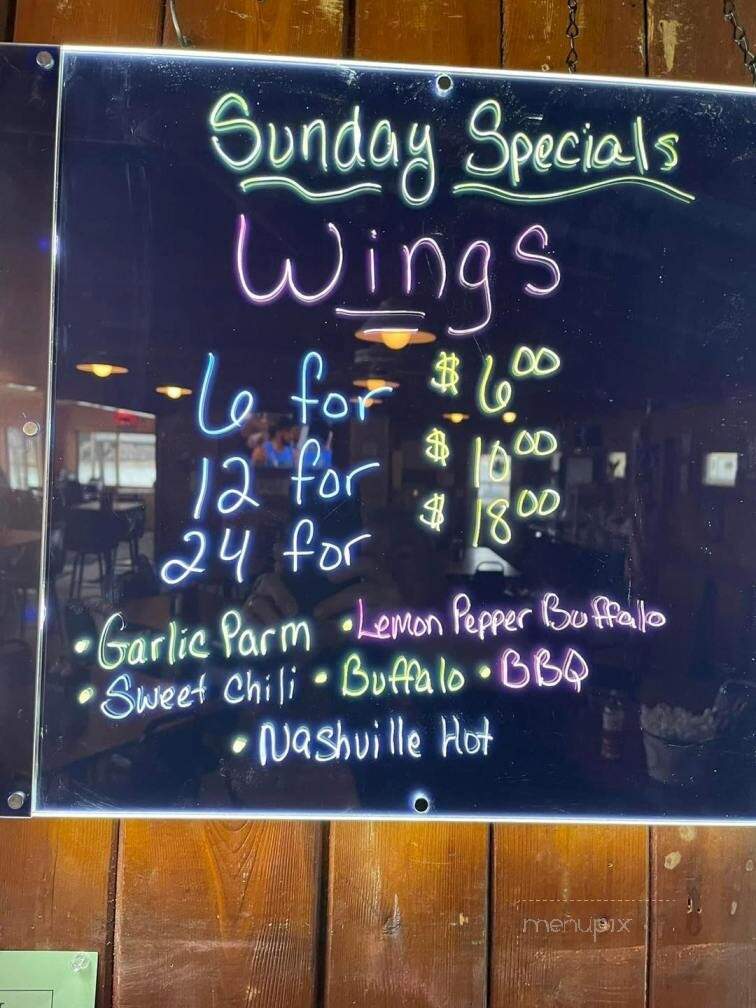 Sunday Specials
Wings
6 for $6.00
12 for $10.00
24 for $18.00
• Garlic Parm • Lemon Pepper Buffalo
• Sweet Chili • Buffalo • BBQ
• Nashville Hot
menupix